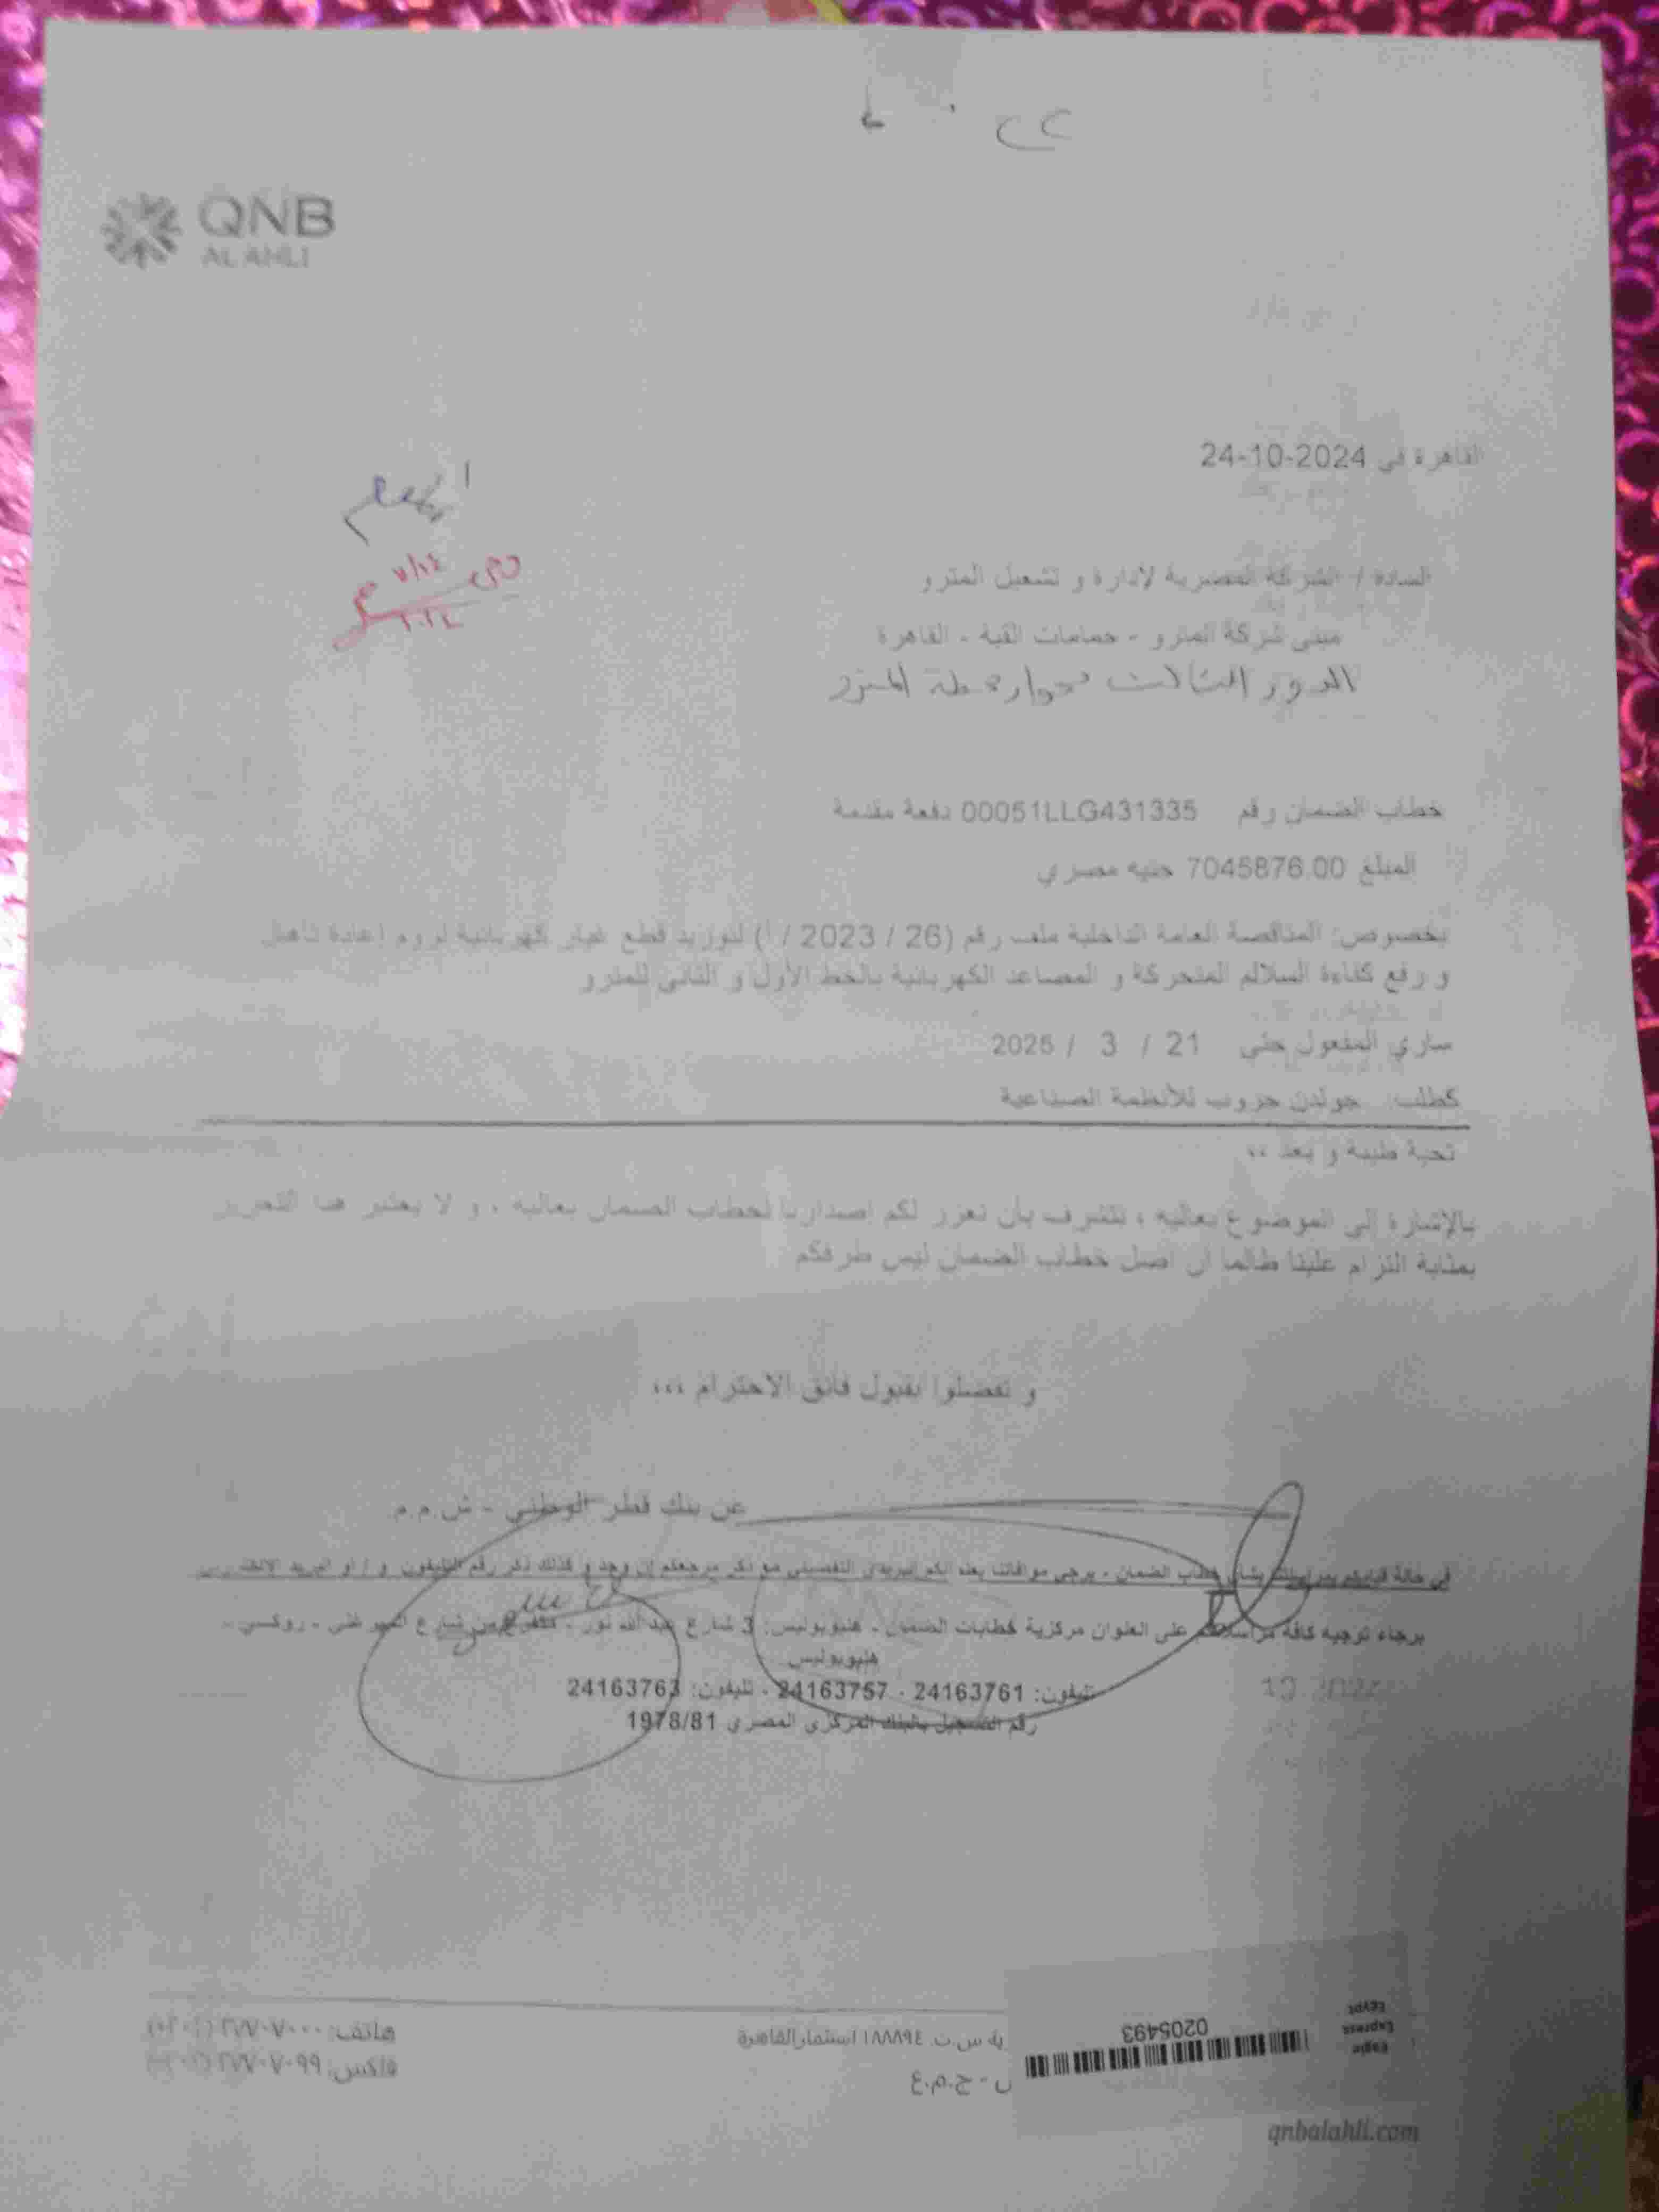 QNB
ALAHLI
القاهرة في 24-10-2024
السادة / الشركة المصرية لإدارة و تشغيل المترو
مبنى شركة المترو - حمامات القبة - القاهرة
الدور الثالث بجوار محطة المترو
خطاب الضمان رقم 00051LLG431335 دفعة مقدمة
المبلغ 7045876.00 جنيه مصري
بخصوص: المناقصة العامة الداخلية ملف رقم (26 / 2023 / أ) لتوريد قطع غيار كهربائية لزوم إعادة تأهيل
و رفع كفاءة السلالم المتحركة و المصاعد الكهربائية بالخط الأول و الثاني للمترو
ساري المفعول حتى 21 / 3 /
كطلب: جولدن جروب للأنظمة الصناعية
تحية طيبة و بعد ،،
بالإشارة إلى الموضوع بعاليه ، نتشرف بأن نعزز لكم إصدارنا لخطاب الضمان بعاليه ، و لا يعتبر هذا التعزيز
بمثابة التزام علينا طالما أن اصل خطاب الضمان ليس طرفكم
و تفضلوا بقبول فائق الاحترام ،،،
عن بنك قطر الوطني - ش.م.م
في حالة قيامكم بمراسلتنا بشأن خطاب الضمان - يرجى موافاتنا بعنوانكم البريدي التفصيلي مع ذكر مرجعكم إن وجد و كذلك ذكر رقم التليفون و / أو البريد
برجاء توجيه كافة مراسلاتكم على العنوان مركزية خطابات الضمان - هليوبوليس: 3 شارع عبد الله نور - متفرع من شارع الميرغني - روكسي -
هليوبوليس
تليفون: 24163761 - 24163757 - تليفون: 24163763
رقم التسجيل بالبنك المركزي المصري 1978/81
هاتف:
فاكس:
س.ت. ١٨٨٨٩٤ استثمار القاهرة
ج.م.ع
0205493
Eagle
Express
Egypt
qnbalahli.com